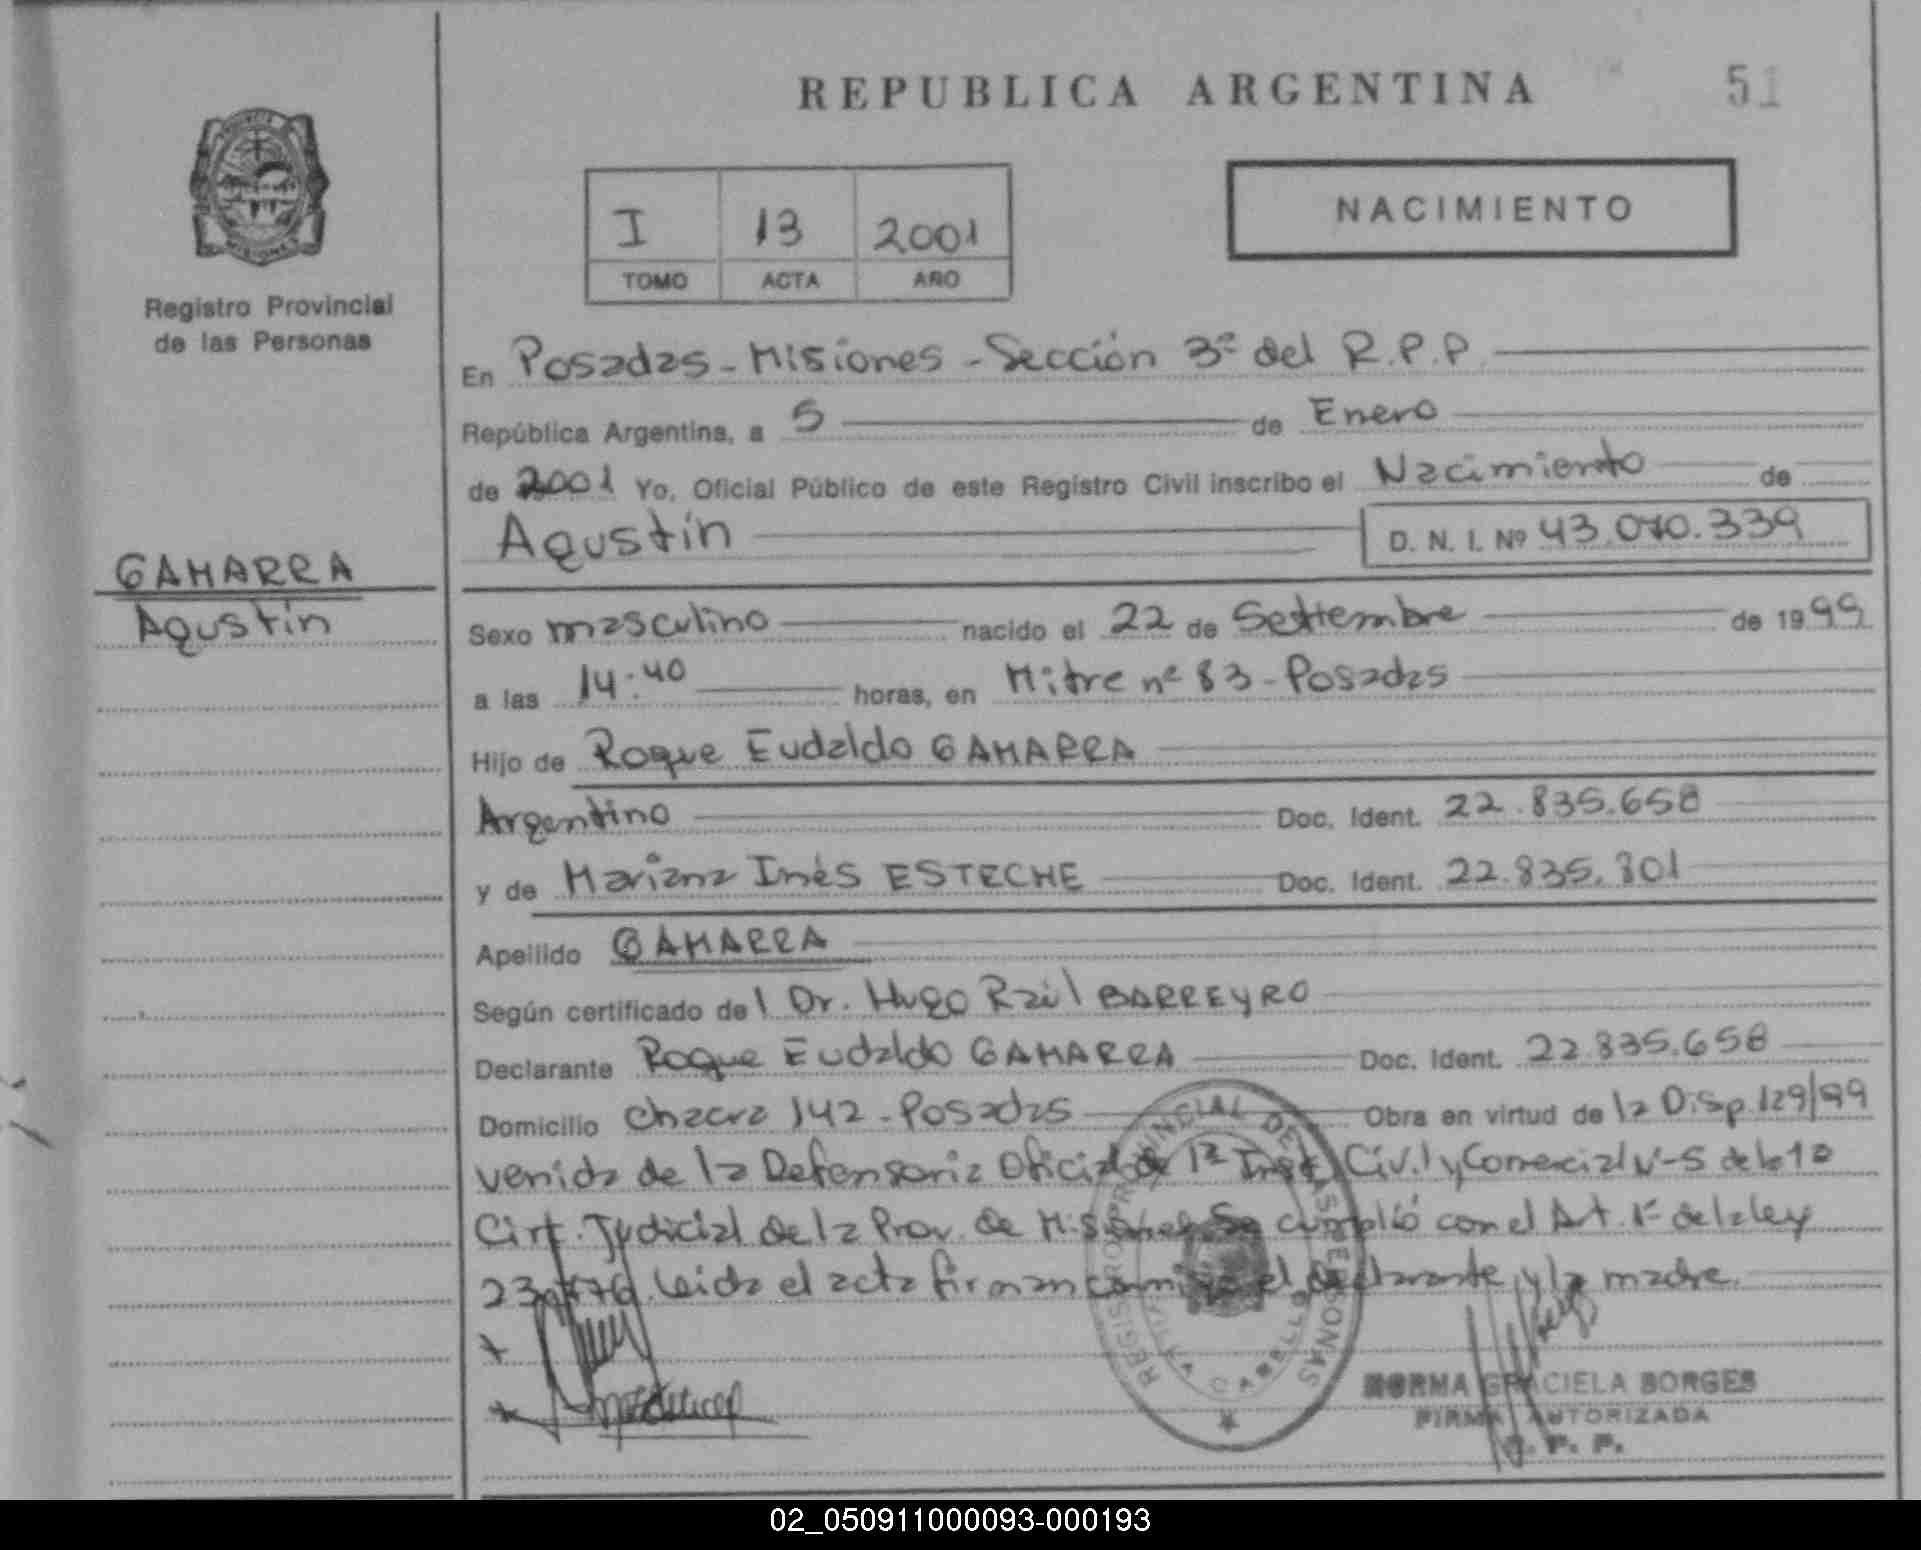 REPUBLICA ARGENTINA
51
PROVINCIA
MISIONES
Registro Provincial
de las Personas
I 13 2001
TOMO ACTA AÑO
NACIMIENTO
En Posadas - Misiones - Sección 3ª del R.P.P.
República Argentina, a 5 de Enero
de 2001 Yo, Oficial Público de este Registro Civil inscribo el Nacimiento de
Agustín D. N. I. Nº 43.070.339
GAMARRA
Agustín
Sexo masculino nacido el 22 de Settiembre de 1999
a las 14:40 horas, en Mitre nº 83 - Posadas
Hijo de Roque Eudaldo GAMARRA
Argentino Doc. Ident. 22.835.658
y de Mariana Inés ESTECHE Doc. Ident. 22.835.801
Apellido GAMARRA
Según certificado del Dr. Hugo Raúl BARREYRO
Declarante Roque Eudaldo GAMARRA Doc. Ident. 22.835.658
Domicilio Chacra 142 - Posadas Obra en virtud de la Disp. 129/99
venida de la Defensoria Oficial de 1ª Inst. Civil y Comercial Nº 5 de la 1ª
Judicial de la Prov. de Misiones Se cumplió con el Art. 1º de la ley
Leida el acta firman conmigo el declarante y la madre.
REGISTRO PROVINCIAL DE LAS PERSONAS
CABELLO
NORMA GRACIELA BORGES
FIRMA AUTORIZADA
R. P. P.
02_050911000093-000193